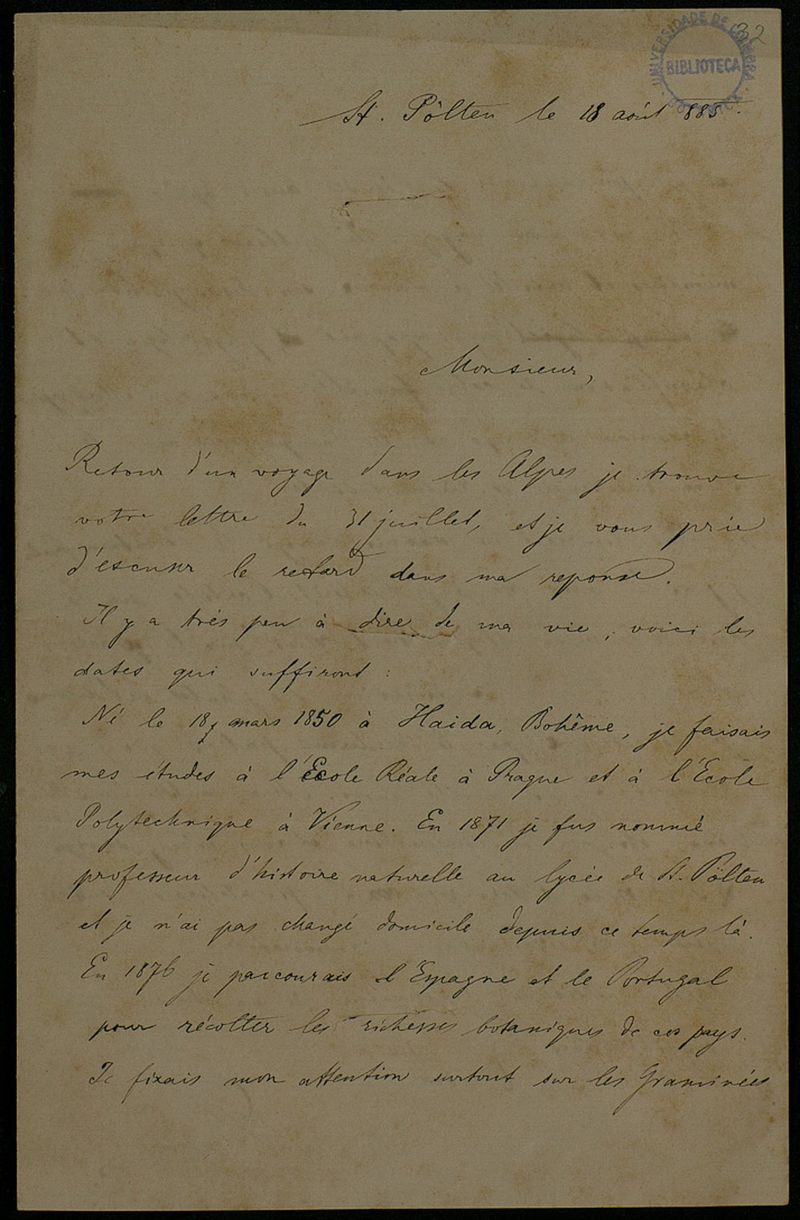 32
UNIVERSIDADE DE COIMBRA
BIBLIOTECA
St. Pölten le 18 aóut 885.
Monsieur,
Retour d'un voyage dans les Alpes je trouve
votre lettre du 31 juillet, et je vous prie
d'escuser le retard dans ma reponse.
Il y a trés peu à dire de ma vie, voici les
dates qui suffiront:
Né le 18 mars 1850 à Haida, Bohême, je faisais
mes études à l'École Réale à Prague et à l'École
Polytechnique à Vienne. En 1871 je fus nommé
professeur d'histoire naturelle au lycée de St. Pölten
et je n'ai pas changé domicile depuis ce temps là.
En 1876 je parcourais l'Espagne et le Portugal
pour récolter les richesses botaniques de ces pays.
Je fixais mon attention surtout sur les Graminées